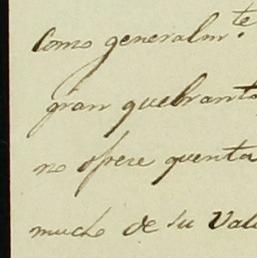 como generalm.te
gran quebranto
no ofrece quenta
mucho de su Val